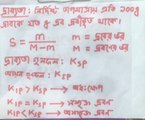 দ্রাব্যতা: নির্দিষ্ট তাপমাত্রায় প্রতি 100g
দ্রাবকে যত g দ্রব দ্রবীভূত থাকে।
S = m / M-m m = দ্রবের ভর
M = দ্রবণের ভর
দ্রাব্যতা গুণফল: Ksp
আয়নিক গুণফল: Kip
Kip > Ksp → অধঃক্ষেপ
Kip = Ksp → সম্পৃক্ত দ্রবণ
Kip < Ksp → অসম্পৃক্ত দ্রবণ